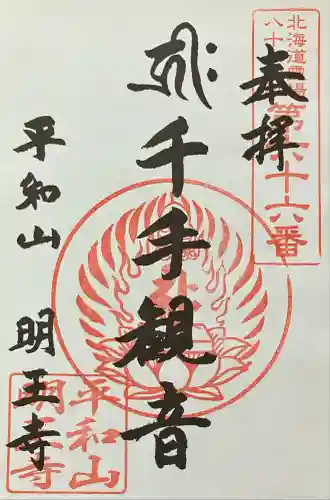 北海道霊場
八十
第六十六番
奉拝
千手観音
平和山 明王寺
平和山
明王寺